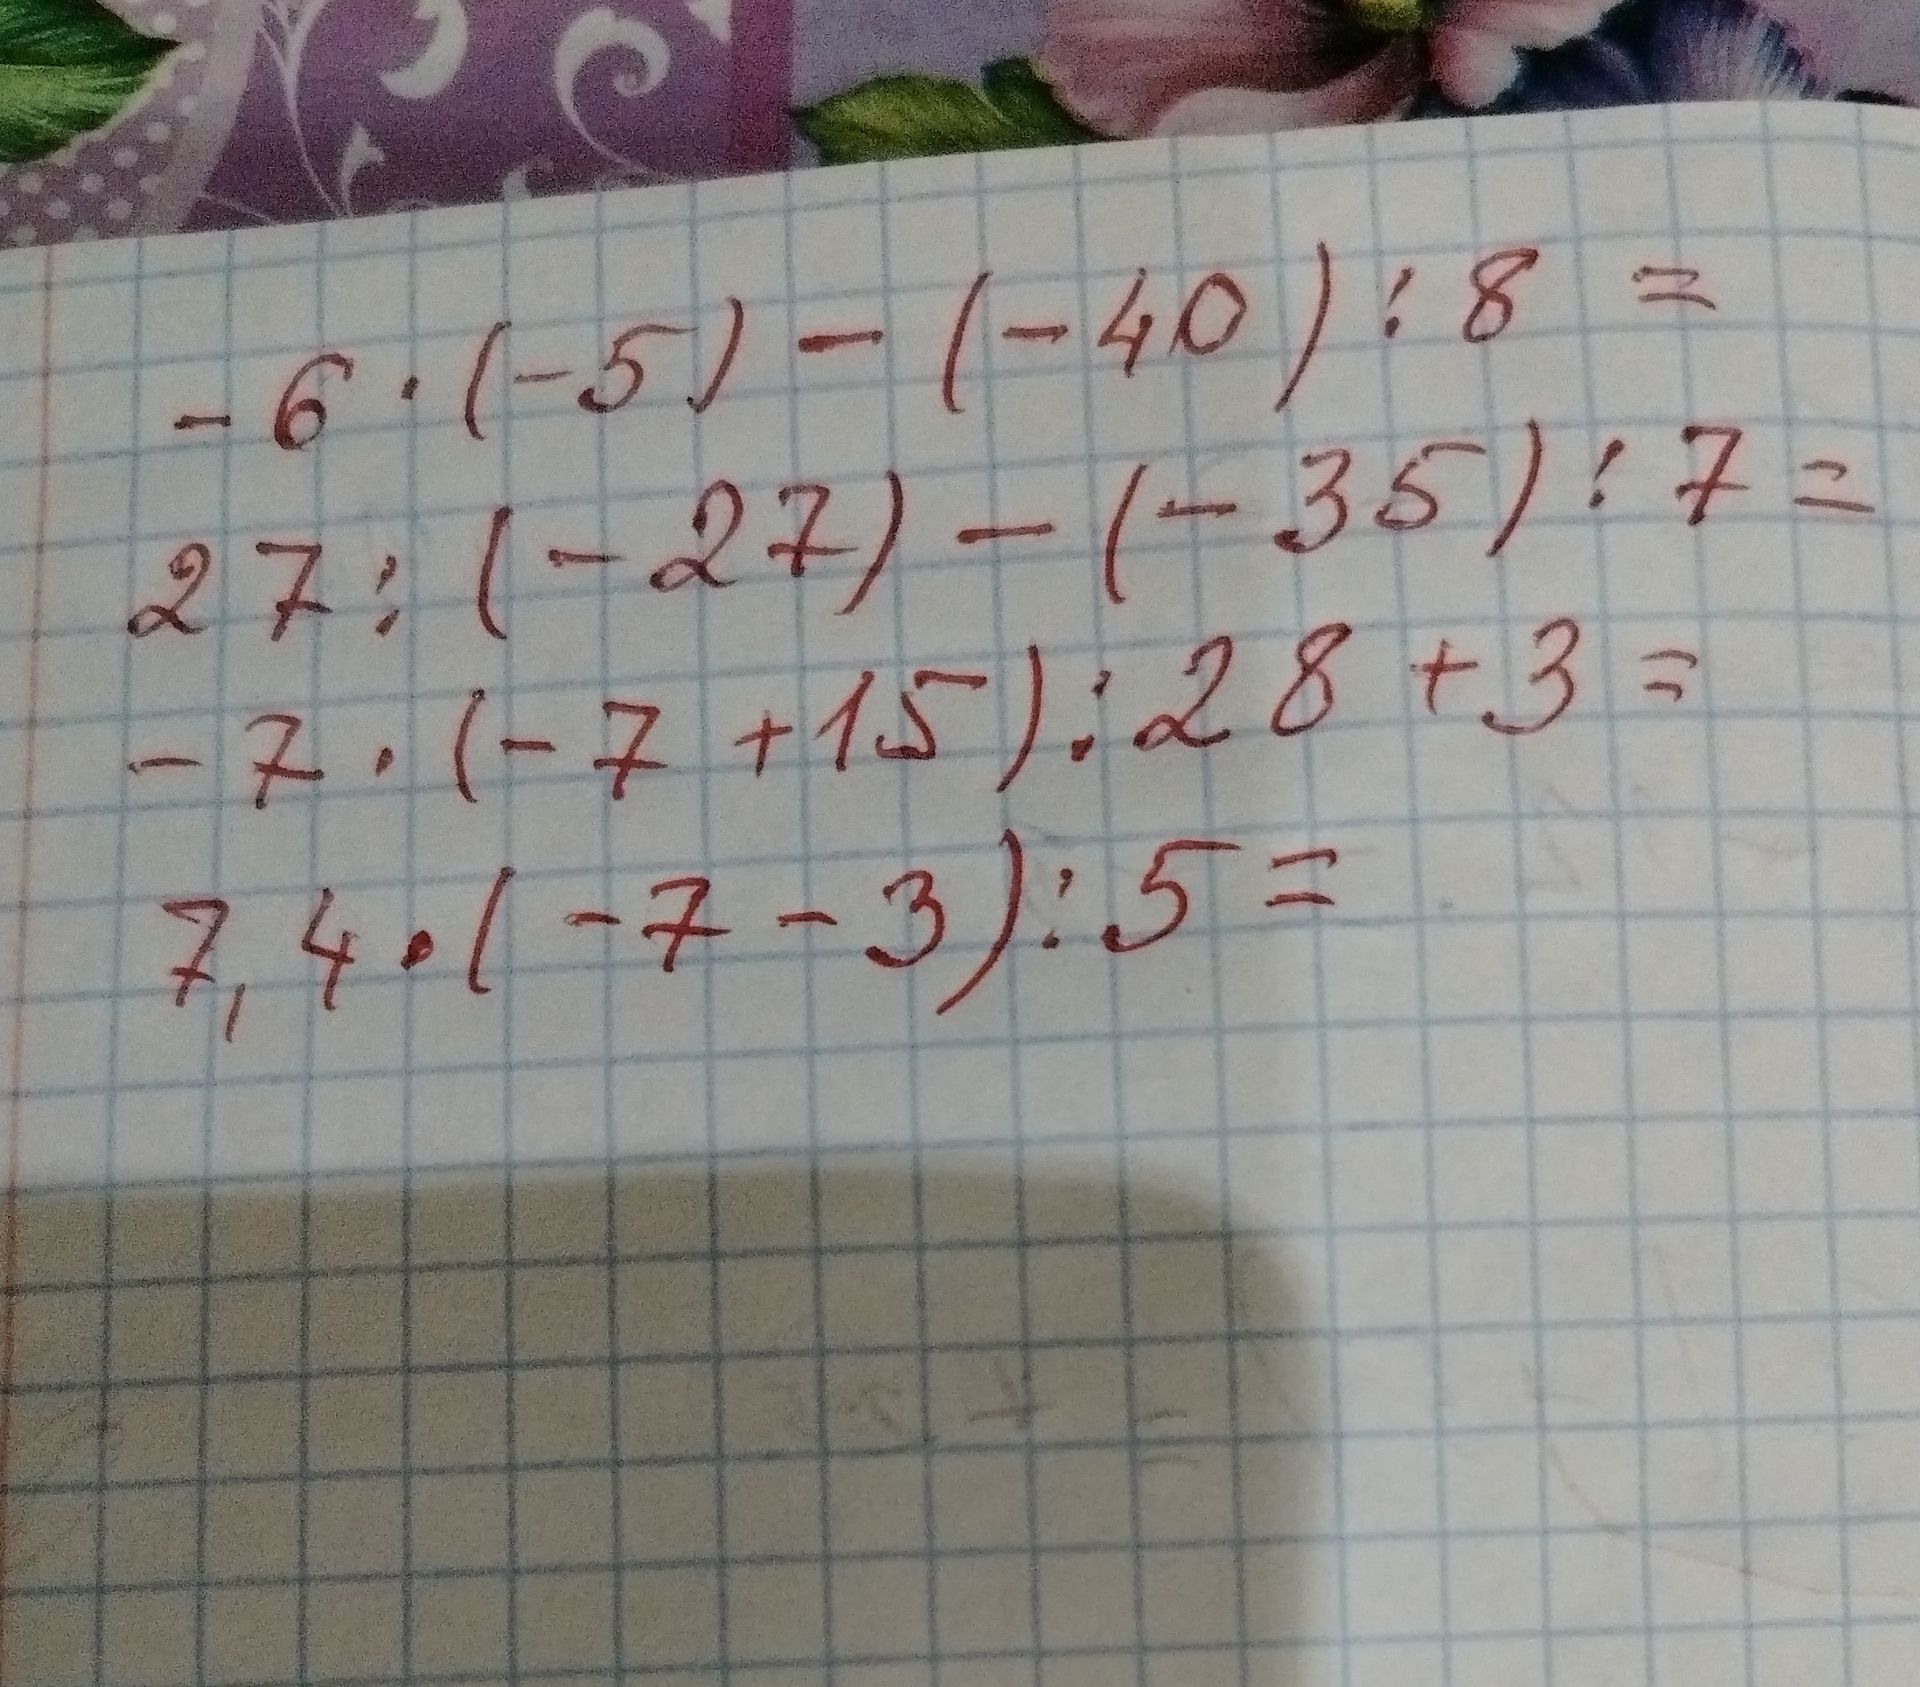 -6·(-5)-(-40):8=
27:(-27)-(-35):7=
-7·(-7+15):28+3=
7,4·(-7-3):5=